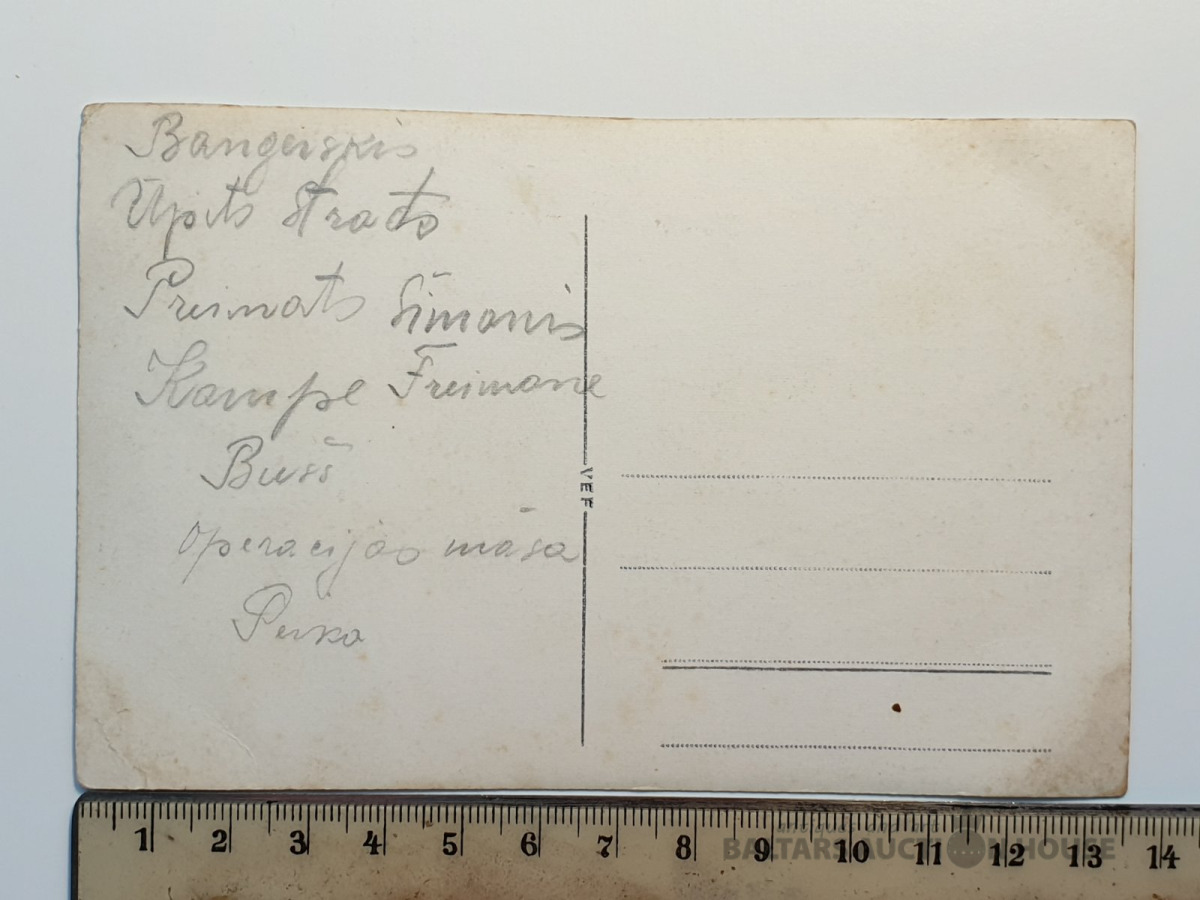 Bangerskis
Upīts Strats
Preimats Sīmanis
Kampe Freimane
Bušs
operacijas māsa
VEF
1 2 3 4 5 6 7 8 9 10 11 12 13 14
BALTARS AUCTION HOUSE